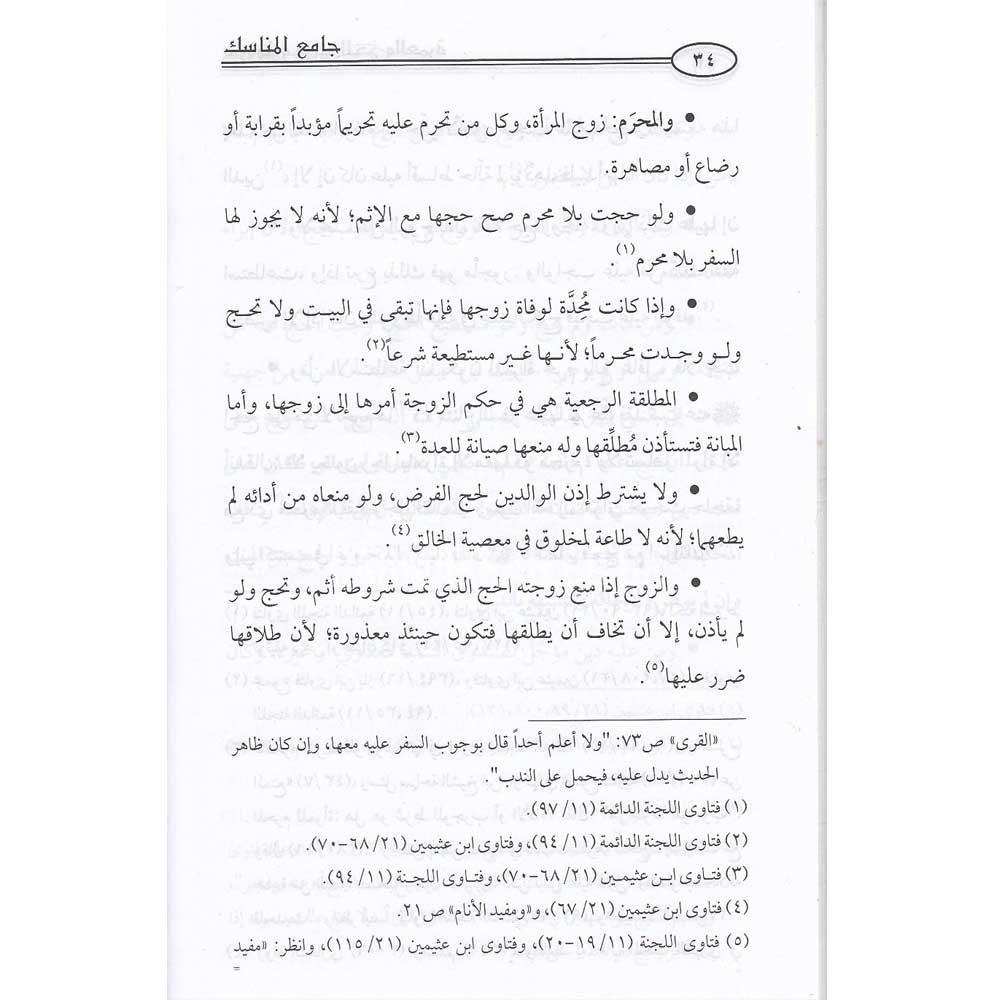 ٣٤
جامع المناسك
• والمحرَم: زوج المرأة، وكل من تحرم عليه تحريماً مؤبداً بقرابة أو
رضاع أو مصاهرة.
• ولو حجت بلا محرم صح حجها مع الإثم؛ لأنه لا يجوز لها
السفر بلا محرم(١).
• وإذا كانت مُحِدَّة لوفاة زوجها فإنها تبقى في البيت ولا تحج
ولو وجدت محرماً؛ لأنها غير مستطيعة شرعاً(٢).
• المطلقة الرجعية هي في حكم الزوجة أمرها إلى زوجها، وأما
المبانة فتستأذن مُطلِّقها وله منعها صيانة للعدة(٣).
• ولا يشترط إذن الوالدين لحج الفرض، ولو منعاه من أدائه لم
يطعهما؛ لأنه لا طاعة لمخلوق في معصية الخالق(٤).
• والزوج إذا منع زوجته الحج الذي تمت شروطه أثم، وتحج ولو
لم يأذن، إلا أن تخاف أن يطلقها فتكون حينئذ معذورة؛ لأن طلاقها
ضرر عليها(٥).
«القرى» ص٧٣: "ولا أعلم أحداً قال بوجوب السفر عليه معها، وإن كان ظاهر
الحديث يدل عليه، فيحمل على الندب".
(١) فتاوى اللجنة الدائمة (١١/ ٩٧).
(٢) فتاوى اللجنة الدائمة (١١/ ٩٤)، وفتاوى ابن عثيمين (٢١/ ٦٨-٧٠).
(٣) فتاوى ابن عثيمين (٢١/ ٦٨-٧٠)، وفتاوى اللجنة (١١/ ٩٤).
(٤) فتاوى ابن عثيمين (٢١/ ٦٧)، و«ومفيد الأنام» ص٢١.
(٥) فتاوى اللجنة (١١/ ١٩-٢٠)، وفتاوى ابن عثيمين (٢١/ ١١٥)، وانظر: «مفيد
=